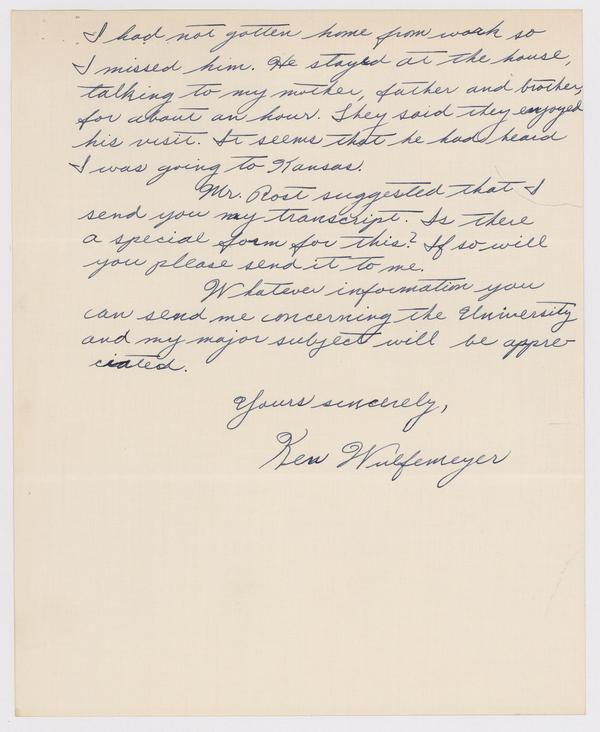 I had not gotten home from work so
I missed him. He stayed at the house,
talking to my mother, father and brother,
for about an hour. They said they enjoyed
his visit. It seems that he had heard
I was going to Kansas.
Mr. Rost suggested that I
send you my transcript. Is there
a special form for this? If so will
you please send it to me.
Whatever information you
can send me concerning the University
and my major subject will be appre-
ciated.
Yours sincerely,
Ken Wulfemeyer